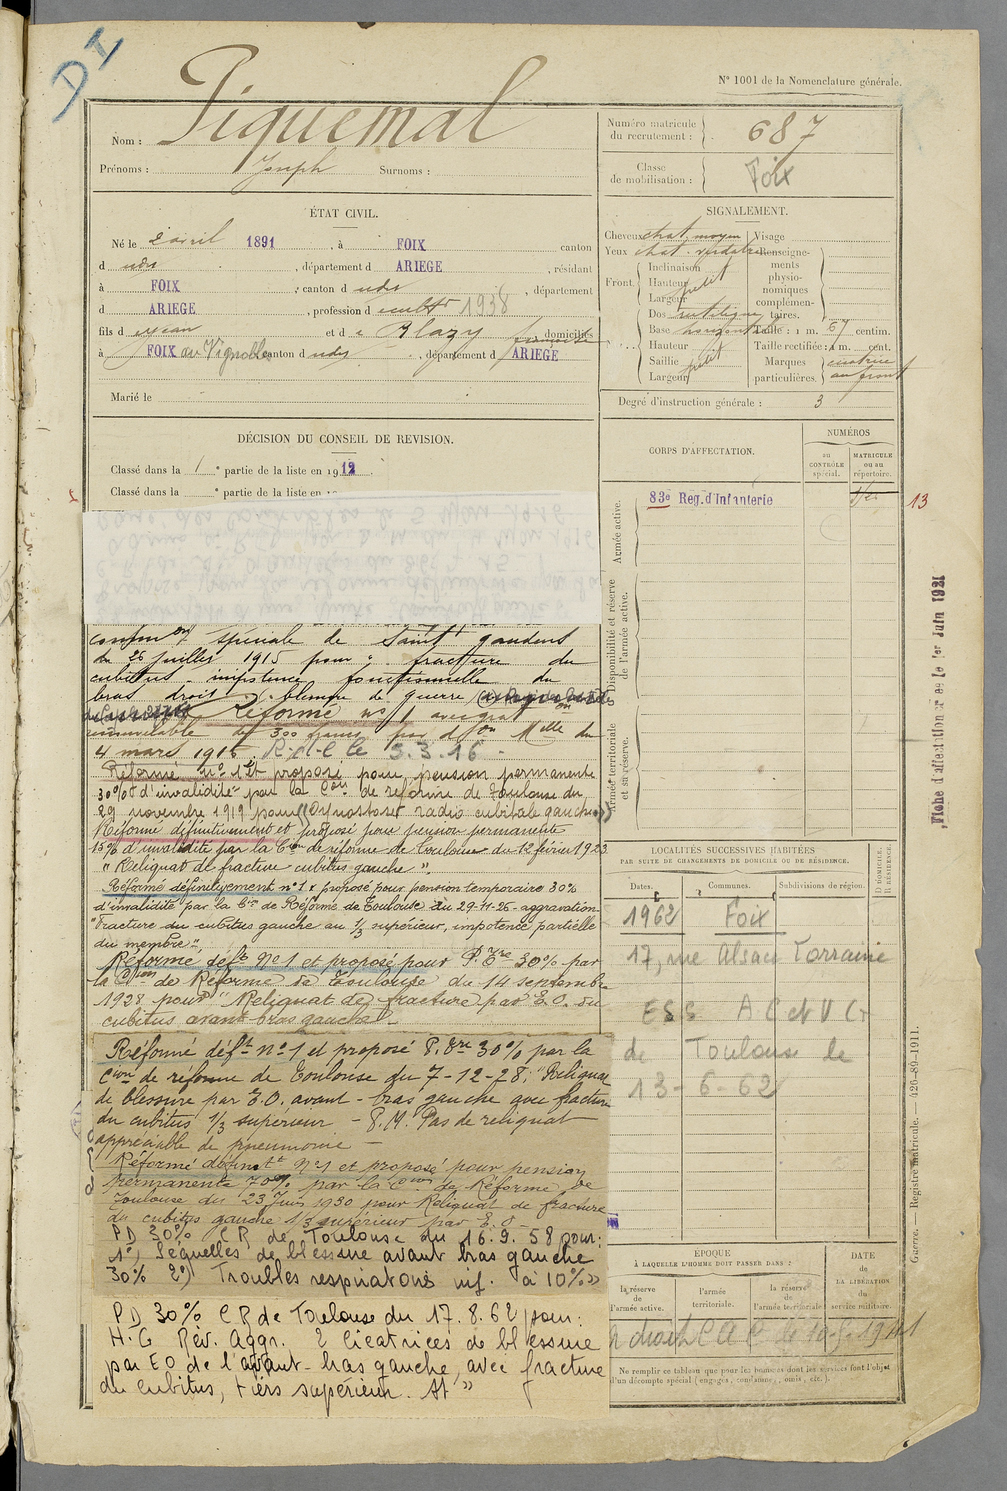 DI
Piquemal
N° 1001 de la Nomenclature générale.
Nom :
Prénoms : Joseph Surnoms :
Numéro matricule
du recrutement : 687
Classe
de mobilisation : Foix
ÉTAT CIVIL.
Né le 2 avril 1891, à FOIX canton
d udt, département d ARIEGE, résidant
à FOIX, canton d udt, département
d ARIEGE, profession d cultr 1938
fils d e Jean et d e Blazy françoise domiciliés
à FOIX au Vignoble canton d udt, département d ARIEGE
Marié le
SIGNALEMENT.
Cheveux chat. moyen Visage
Yeux chat. verdatre Renseigne-
ments
physio-
nomiques
complémen-
taires.
Front. Inclinaison
Hauteur petit
Largeur
Dos rectiligne
Base horizontale Taille : 1 m. 67 centim.
Hauteur Taille rectifiée : 1 m. cent.
Saillie petit Marques cicatrice
Largeur particulières. au front
Degré d'instruction générale : 3
DÉCISION DU CONSEIL DE REVISION.
Classé dans la 1e partie de la liste en 1912
Classé dans la e partie de la liste en 19
CORPS D'AFFECTATION.
NUMÉROS
au CONTRÔLE spécial.
MATRICULE ou au répertoire.
Armée active.
83e Reg. d'Infanterie
13
Disponibilité et réserve de l'armée active.
Armée territoriale et sa réserve.
Fiche d'affectation créée le 1er Juin 1921
common spéciale de Saint gaudens
du 26 juillet 1915 pour : fracture du
cubitus impotence fonctionnelle du
bras droit blessure de guerre
Réformé n° 1 avec grat on
renouvelable de 300 francs par don Mlle du
4 mars 1916 R.d.C le 3.3.16 -
Réformé n° 1 et proposé pour pension permanente
30% d'invalidité par la Con de réforme de Toulouse du
29 novembre 1919 pour "Synostose radio cubitale gauche"
Réformé définitivement et proposé pour pension permanente
15% d'invalidité par la Con de réforme de Toulouse du 12 février 1923
"Reliquat de fracture cubitus gauche".
Réformé définitivement n° 1 & proposé pour pension temporaire 30%
d'invalidité par la Con de Réforme de Toulouse du 29-11-26 - aggravation
"Fracture du cubitus gauche au 1/3 supérieur, impotence partielle
du membre".
Réformé deft N° 1 et proposé pour P. Tre 30% par
la Con de Réforme de Toulouse du 14 septembre
1928 pour "Reliquat de fracture par E.O. du
cubitus avant-bras gauche" -
Réformé déft n° 1 et proposé P. Tre 30% par la
Con de réforme de Toulouse du 7-12-28 : "Reliquat
de blessure par E.O. avant-bras gauche avec fracture
du cubitus 1/3 supérieur - P.M. Pas de reliquat
appréciable de pneumonie -
Réformé définitt N° 1 et proposé pour pension
permanente 70% par la Con de Réforme de
Toulouse du 23 Juin 1930 pour Reliquat de fracture
du cubitus gauche 1/3 supérieur par E.O.
PD 30% CR de Toulouse du 16.9.58 pour :
1°) Séquelles de blessure avant bras gauche
30% 2°) Troubles respiratoires inf. à 10% »
PD 30% CR de Toulouse du 17.8.62 pour :
H.G Rev. Aggr. 2 cicatrices de blessure
par EO de l'avant-bras gauche, avec fracture
du cubitus, tiers supérieur. At »
LOCALITÉS SUCCESSIVES HABITÉES
PAR SUITE DE CHANGEMENTS DE DOMICILE OU DE RÉSIDENCE.
D DOMICILE.
R RÉSIDENCE.
Dates. Communes. Subdivisions de région.
1962 Foix
17, rue Alsace Lorraine
ESS AC et V G
de Toulouse le
13-6-62
ÉPOQUE
À LAQUELLE L'HOMME DOIT PASSER DANS :
DATE
de
LA LIBÉRATION
du
service militaire.
la réserve
de
l'armée active.
l'armée
territoriale.
la réserve
de
l'armée territoriale
Ne remplir ce tableau que pour les hommes dont les services font l'objet
d'un décompte spécial (engagés, condamnés, omis, etc.).
Guerre. — Registre matricule. — 426-89-1911.